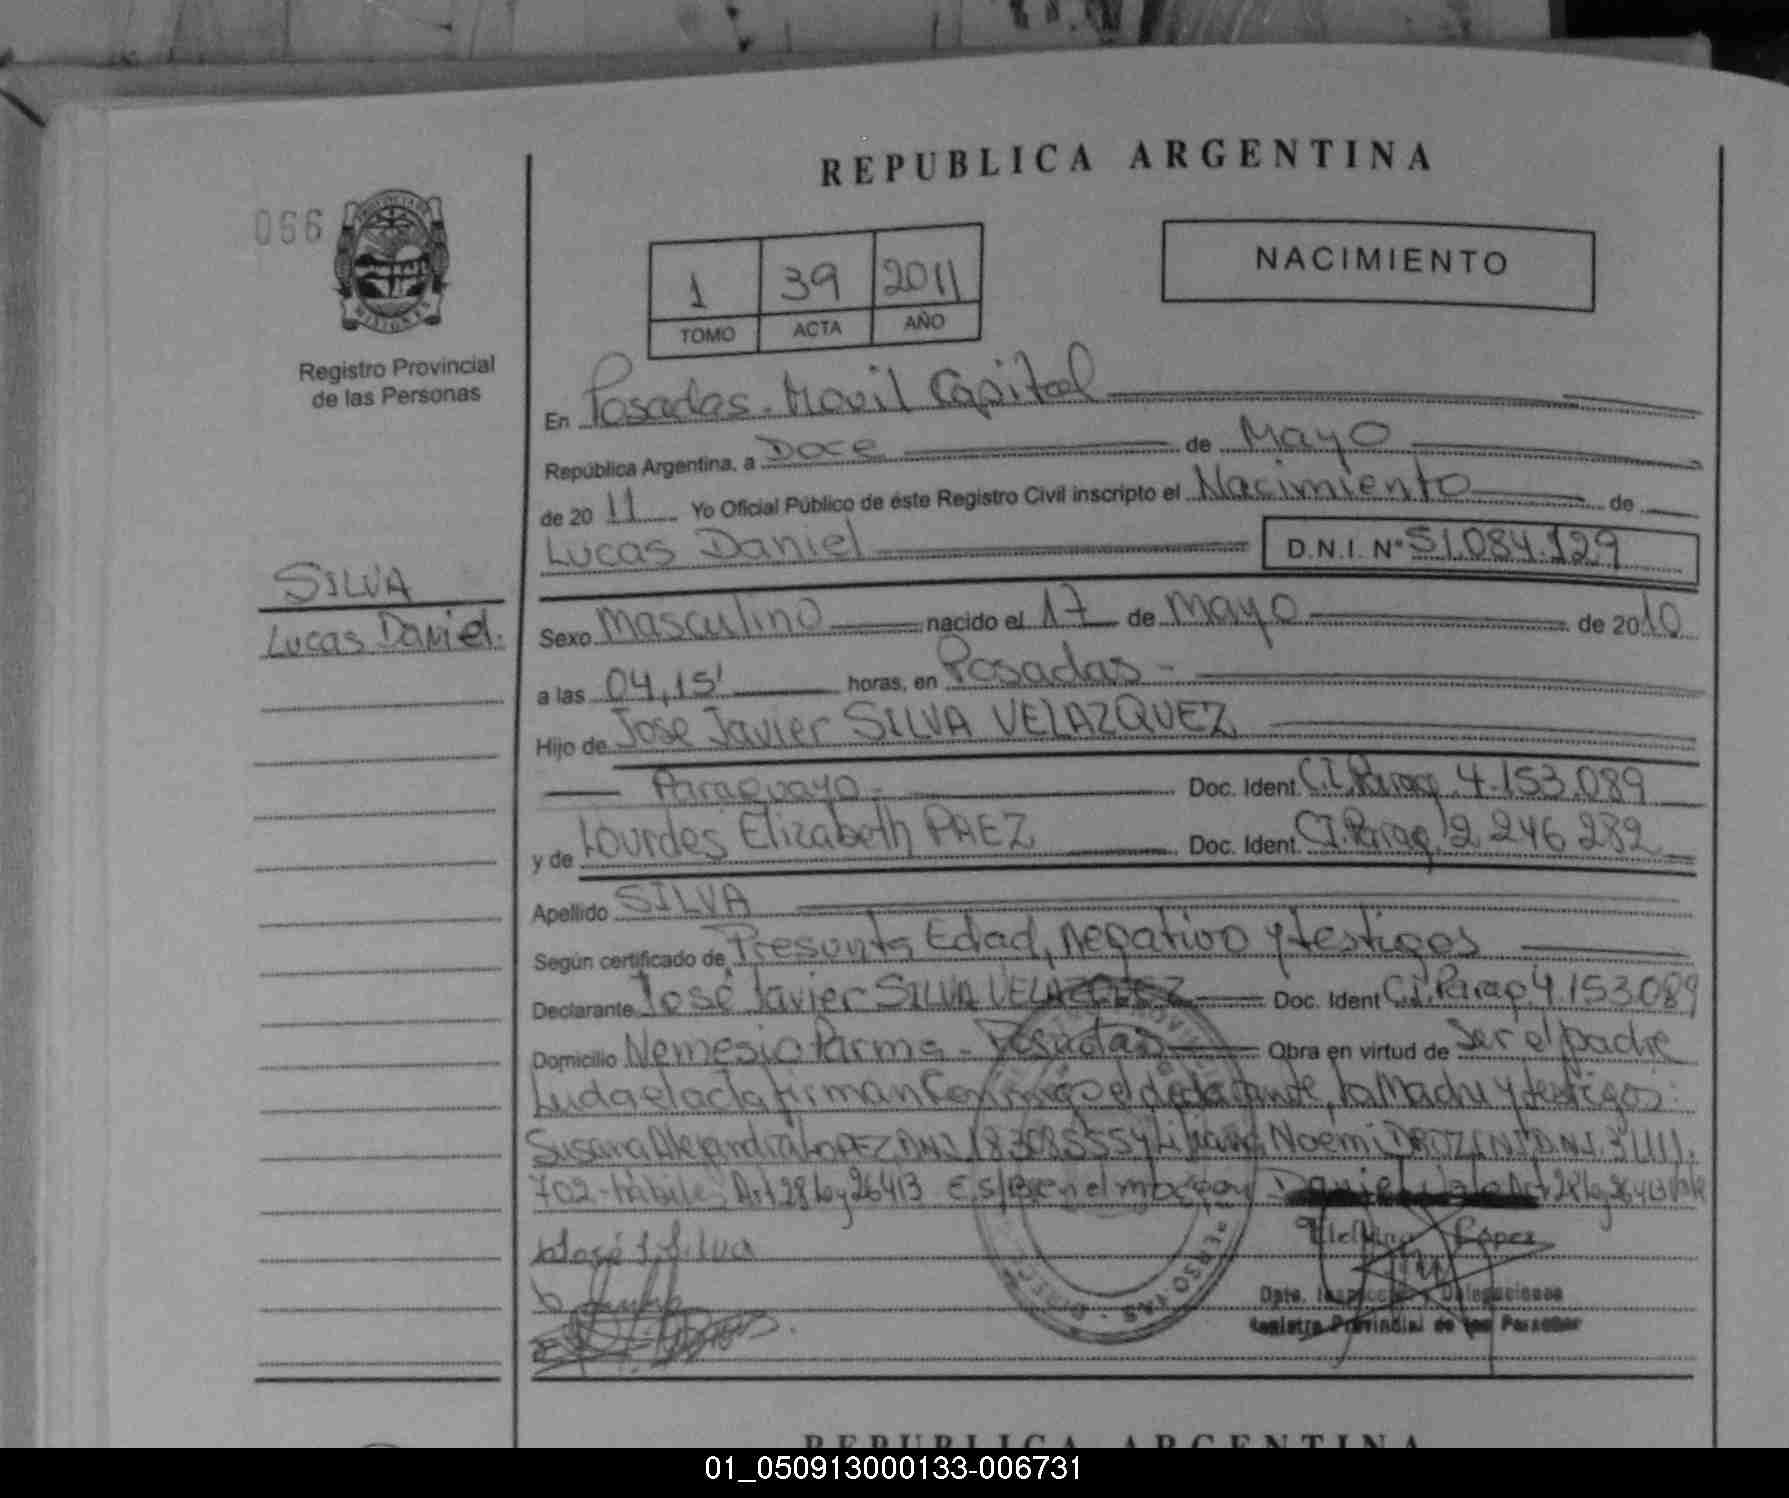 REPUBLICA ARGENTINA
066
NACIMIENTO
1 39 2011
TOMO ACTA AÑO
Registro Provincial
de las Personas
En Posadas. Movil Capital
República Argentina, a Doce de Mayo
de 2011 Yo Oficial Público de éste Registro Civil inscripto el Nacimiento de
Lucas Daniel D.N.I. Nº 51.084.129
SILVA
Lucas Daniel.
Sexo Masculino nacido el 17 de Mayo de 2010
a las 04,15' horas, en Posadas -
Hijo de Jose Javier SILVA VELAZQUEZ
Paraguayo - Doc. Ident. C.I. Parag. 4.153.089
y de Lourdes Elizabeth PAEZ Doc. Ident. C.I. Parag. 2 246 282
Apellido SILVA
Según certificado de Presunta Edad, negativo y testigos
Declarante José Javier SILVA VELAZQUEZ Doc. Ident C.I. Parag 4.153.089
Domicilio Nemesio Parma - Posadas Obra en virtud de Ser el padre
Leida el acta firman Conmigo el declarante, la Madre y testigos:
Susana Alejandra LOPEZ DNI 18308555 y Liliana Noemi DNI. 31111.
702-habiles Art 28 Ley 26413
José J. Silva
López
Dpto. Inspección y Delegaciones
Registro Provincial de las Personas
REPUBLICA ARGENTINA
01_050913000133-006731